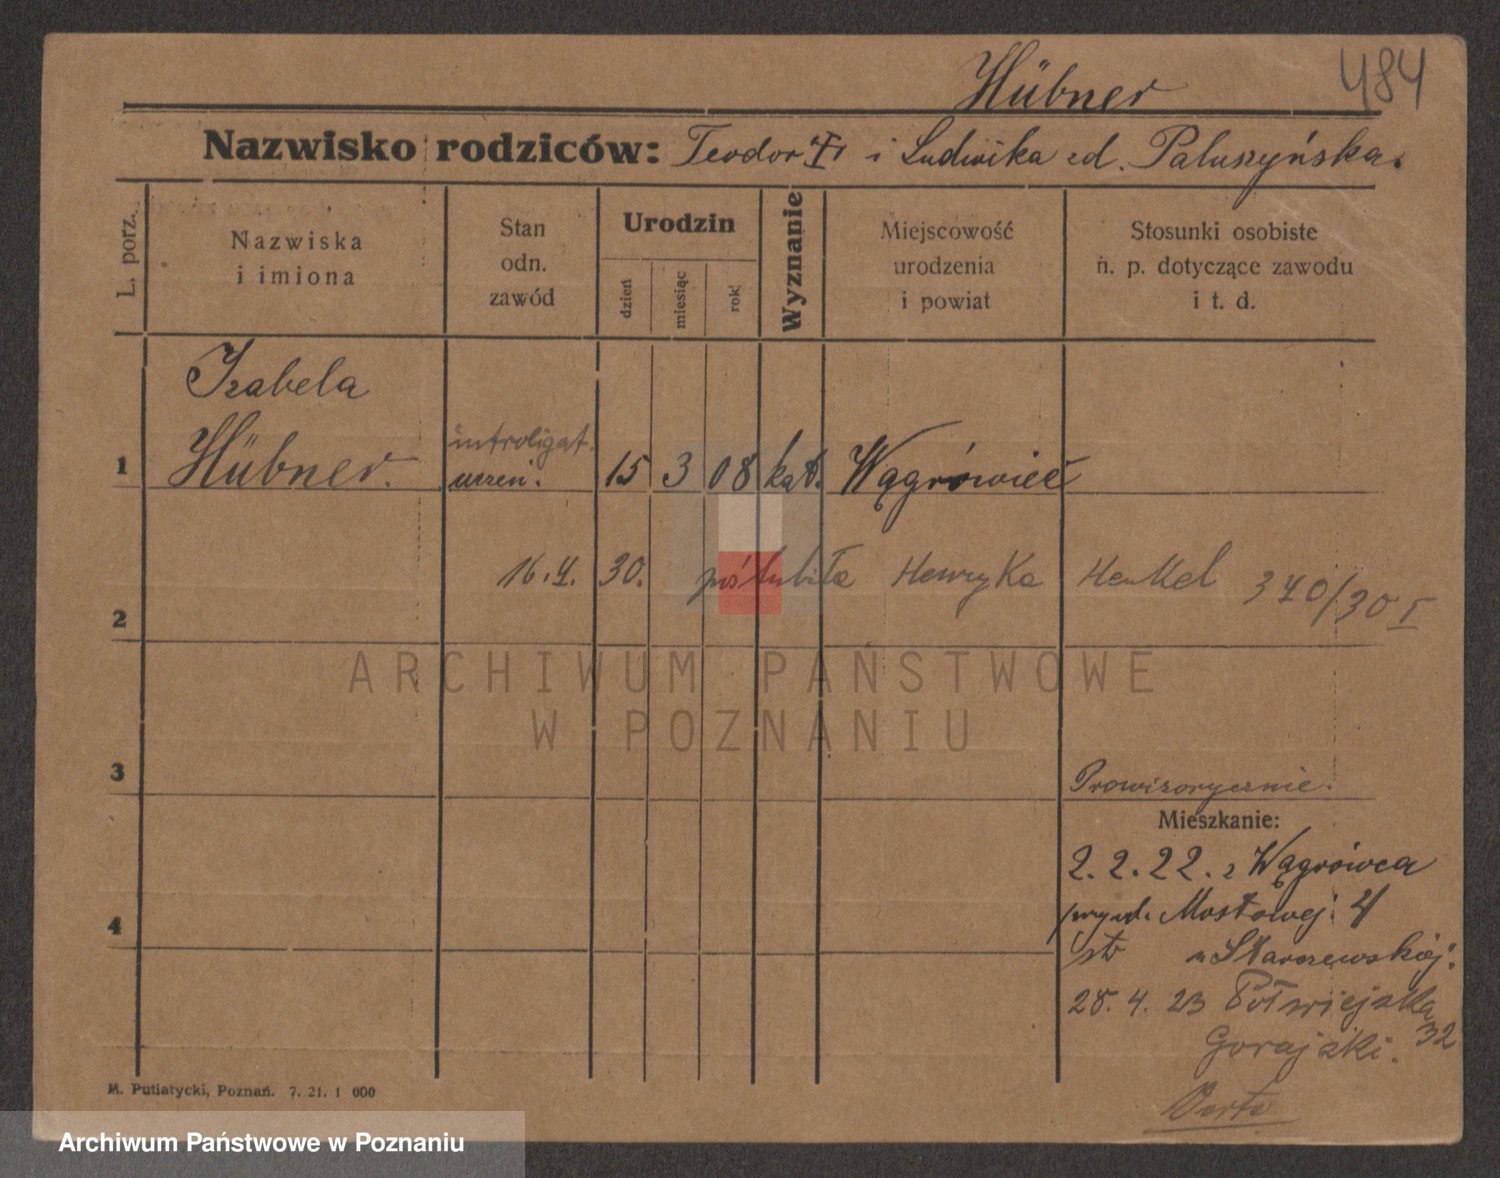 Hübner
484
Nazwisko rodziców: Teodor i Ludwika zd. Paluszyńska.
L. porz.
Nazwiska
i imiona
Stan
odn.
zawód
Urodzin
dzień
miesiąc
rok
Wyznanie
Miejscowość
urodzenia
i powiat
Stosunki osobiste
n. p. dotyczące zawodu
i t. d.
Izabela
1 Hübner. introligat. uczeń. 15 3 08 kat. Wągrówiec
2 16.4. 30. poślubiła Henryka Henkel 340/30 I
ARCHIWUM PAŃSTWOWE
W POZNANIU
3
Prowizorycznie.
Mieszkanie:
2.2.22. z Wągrówca
przy ul. Mostowej 4
4
u Starszewskiej.
28.4.23 Półwiejska
32
Gorajski.
M. Putiatycki, Poznań. 7. 21. 1 000
Archiwum Państwowe w Poznaniu